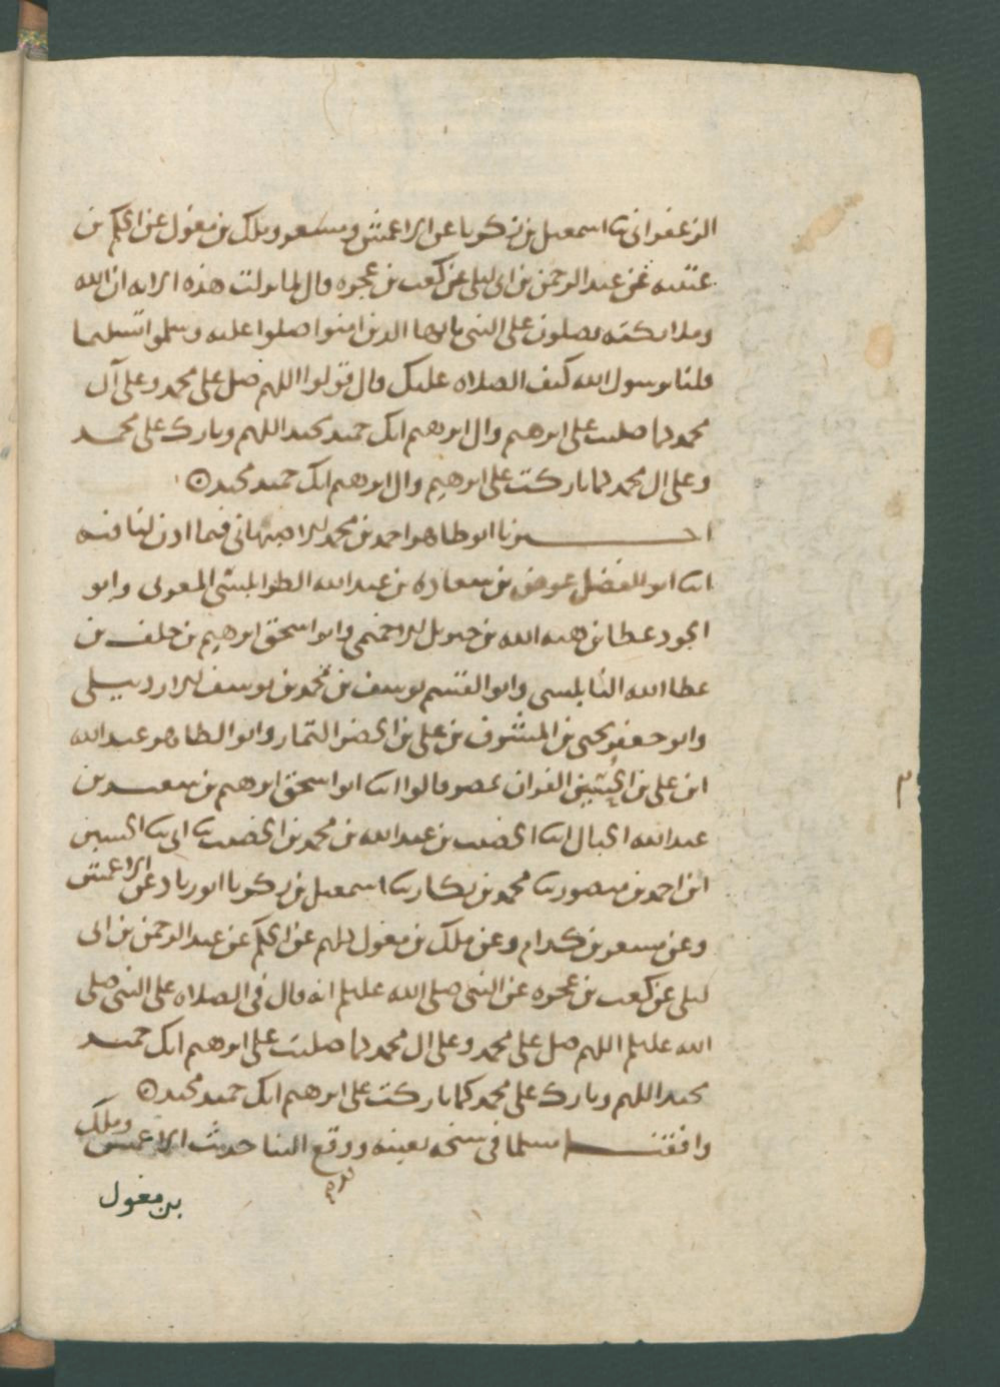 الزعفراني ثنا اسمعيل بن زكريا عن الاعمش ومسعر وملك بن مغول عن الحكم بن
عتيبه عن عبد الرحمن بن ابي ليلى عن كعب بن عجره قال لما نزلت هذه الايه ان الله
وملائكته يصلون على النبي يايها الذين امنوا صلوا عليه وسلموا تسليما
قلنا يرسول الله كيف الصلاه عليك قال قولوا اللهم صل على محمد وعلى آل
محمد كما صليت على ابرهيم وال ابرهيم انك حميد مجيد اللهم وبارك على محمد
وعلى ال محمد كما باركت على ابرهيم وال ابرهيم انك حميد مجيد
اخبرنا ابو طاهر احمد بن محمد الاصبهاني فيما اذن لنا فيه
انا ابو الفضل عوض بن سعاده بن عبد الله الطرابلسي وابو
الجود عطا بن هبه الله بن جبريل الاخميمي وابو اسحق ابرهيم بن خلف بن
عطا الله النابلسي وابو القسم يوسف بن محمد بن يوسف الاردبيلي
وابو جعفر يحيى بن المشرف بن علي بن الخضر التمار وابو الطاهر عبد الله
ابن علي بن القزاز بمصر قالوا انا ابو اسحق ابرهيم بن سعيد بن
عبد الله الحبال انا الخصيب بن عبد الله بن محمد بن الخصيب ثنا ابي ثنا الحسين
ابن احمد بن منصور ثنا محمد بن بكار ثنا اسمعيل بن زكريا ابو زياد عن الاعمش
وعن مسعر بن كدام وعن ملك بن مغول كلهم عن الحكم عن عبد الرحمن بن ابي
ليلى عن كعب بن عجره عن النبي صلى الله عليه انه قال في الصلاه على النبي صلى
الله عليه اللهم صل على محمد وعلى ال محمد كما صليت على ابرهيم انك حميد
مجيد اللهم وبارك على محمد كما باركت على ابرهيم انك حميد مجيد
وافقنا مسلما في شيخه بعينه ووقع الينا حديث الاعمش وملك
بن مغول